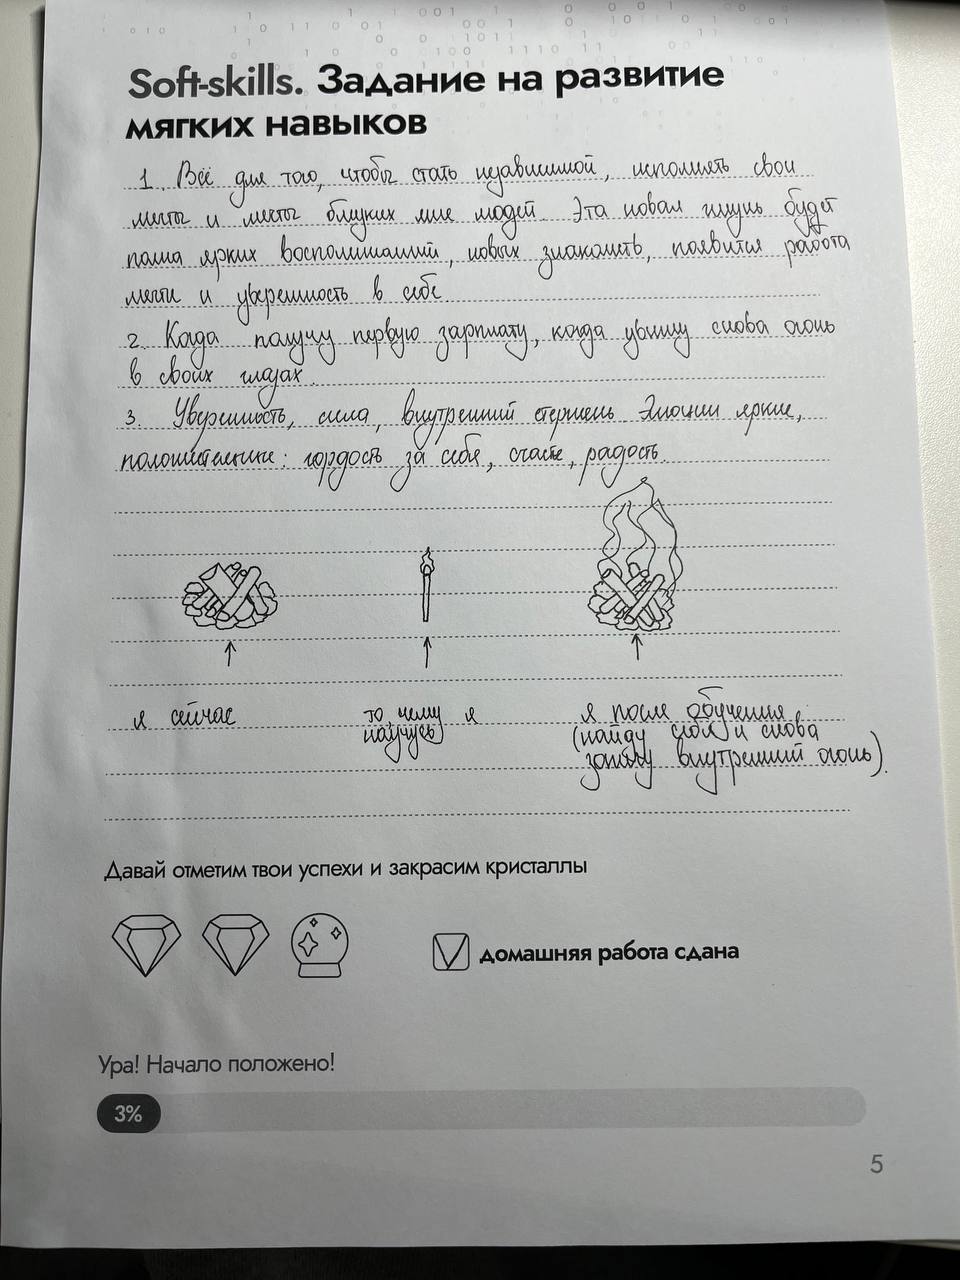 Soft-skills. Задание на развитие
мягких навыков
1. Всё для того, чтобы стать независимой, исполнять свои
мечты и мечты близких мне людей. Эта новая жизнь будет
полна ярких воспоминаний, новых знакомств, появится работа
мечты и уверенность в себе
2. Когда получу первую зарплату, когда увижу снова огонь
в своих глазах.
3. Уверенность, сила, внутренний стержень. Эмоции яркие,
положительные: гордость за себя, счастье, радость.
я сейчас
то, чему я
научусь
я после обучения
(найду себя и снова
зажгу внутренний огонь).
Давай отметим твои успехи и закрасим кристаллы
домашняя работа сдана
Ура! Начало положено!
3%
5